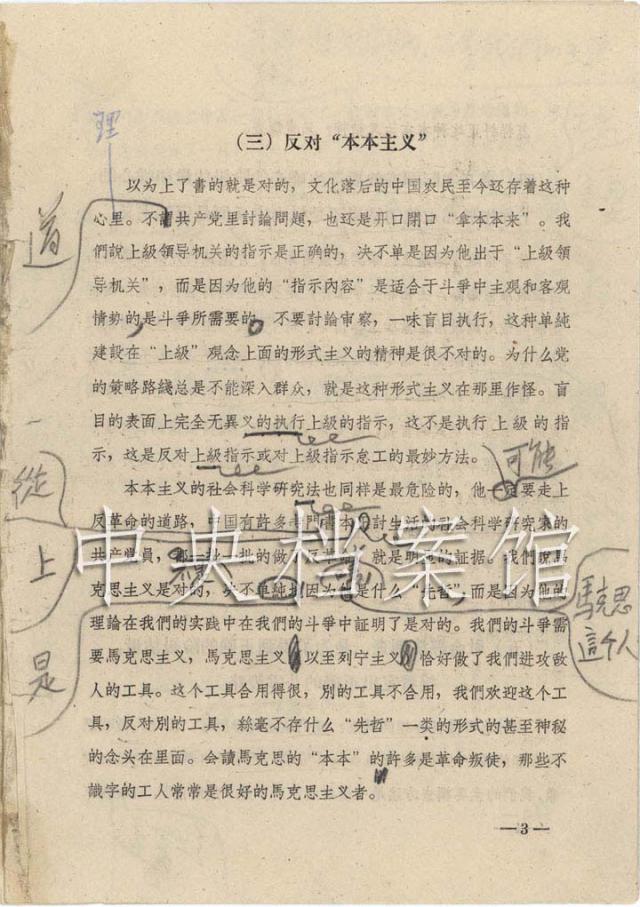 理
(三) 反对“本本主义”
以为上了書的就是对的，文化落后的中国农民至今还存着这种
心里。不謂共产党里討論問題，也还是开口閉口“拿本本来”。我
道
們說上級領导机关的指示是正确的，决不单是因为他出于“上級領
导机关”，而是因为他的“指示內容”是适合于斗爭中主观和客观
情勢的，是斗爭所需要的。不要討論审察，一味盲目执行，这种单純
建設在“上級”观念上面的形式主义的精神是很不对的。为什么党
的策略路綫总是不能深入群众，就是这种形式主义在那里作怪。盲
目的表面上完全无異义的执行上級的指示，这不是执行上級的指
示，这是反对上級指示或对上級指示怠工的最妙方法。
可能
本本主义的社会科学研究法也同样是最危险的，他一定要走上
從
反革命的道路，中国有許多专門
討生活的社会科学研究家的
共产党員，
一批一批的做了反革命，就是明显的証据。我們說馬
上
克思主义是对的，决不单純
因为他是什么“先哲”，而是因为他的
馬克思
這个人
理論在我們的实践中在我們的斗爭中証明了是对的。我們的斗爭需
要馬克思主义，馬克思主义
以至列宁主义
恰好做了我們进攻敌
是
人的工具。这个工具合用得很，別的工具不合用，我們欢迎这个工
具，反对別的工具，絲毫不存什么“先哲”一类的形式的甚至神秘
的念头在里面。会讀馬克思的“本本”的許多是革命叛徒，那些不
識字的工人常常是很好的馬克思主义者。
—3—
中央档案馆